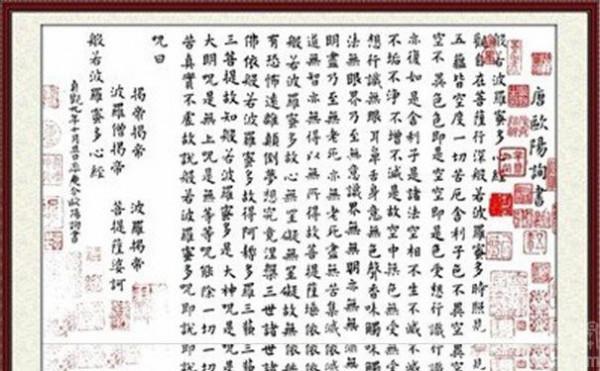 唐歐陽詢書
般若波羅蜜多心經
觀自在菩薩行深般若波羅蜜多時照見
五蘊皆空度一切苦厄舍利子色不異空
空不異色色即是空空即是色受想行識
亦復如是舍利子是諸法空相不生不滅
不垢不淨不增不減是故空中無色無受無
想行識無眼耳鼻舌身意無色聲香味觸
法無眼界乃至無意識界無無明亦無無
明盡乃至無老死亦無老死盡無苦集滅
道無智亦無得以無所得故菩提薩埵依
般若波羅蜜多故心無罣礙罣礙故無
有恐怖遠離顛倒夢想究竟涅槃三世諸
佛依般若波羅蜜多故得阿耨多羅三藐
三菩提故知般若波羅蜜多是大神呪是
大明呪是無上呪是無等等呪能除一切
苦真實不虛故說般若波羅蜜多呪即說
呪曰
揭帝揭帝 波羅揭帝
波羅僧揭帝 菩提薩婆訶
般若波羅蜜多心經
貞觀九年十月旦日率更令歐陽詢書